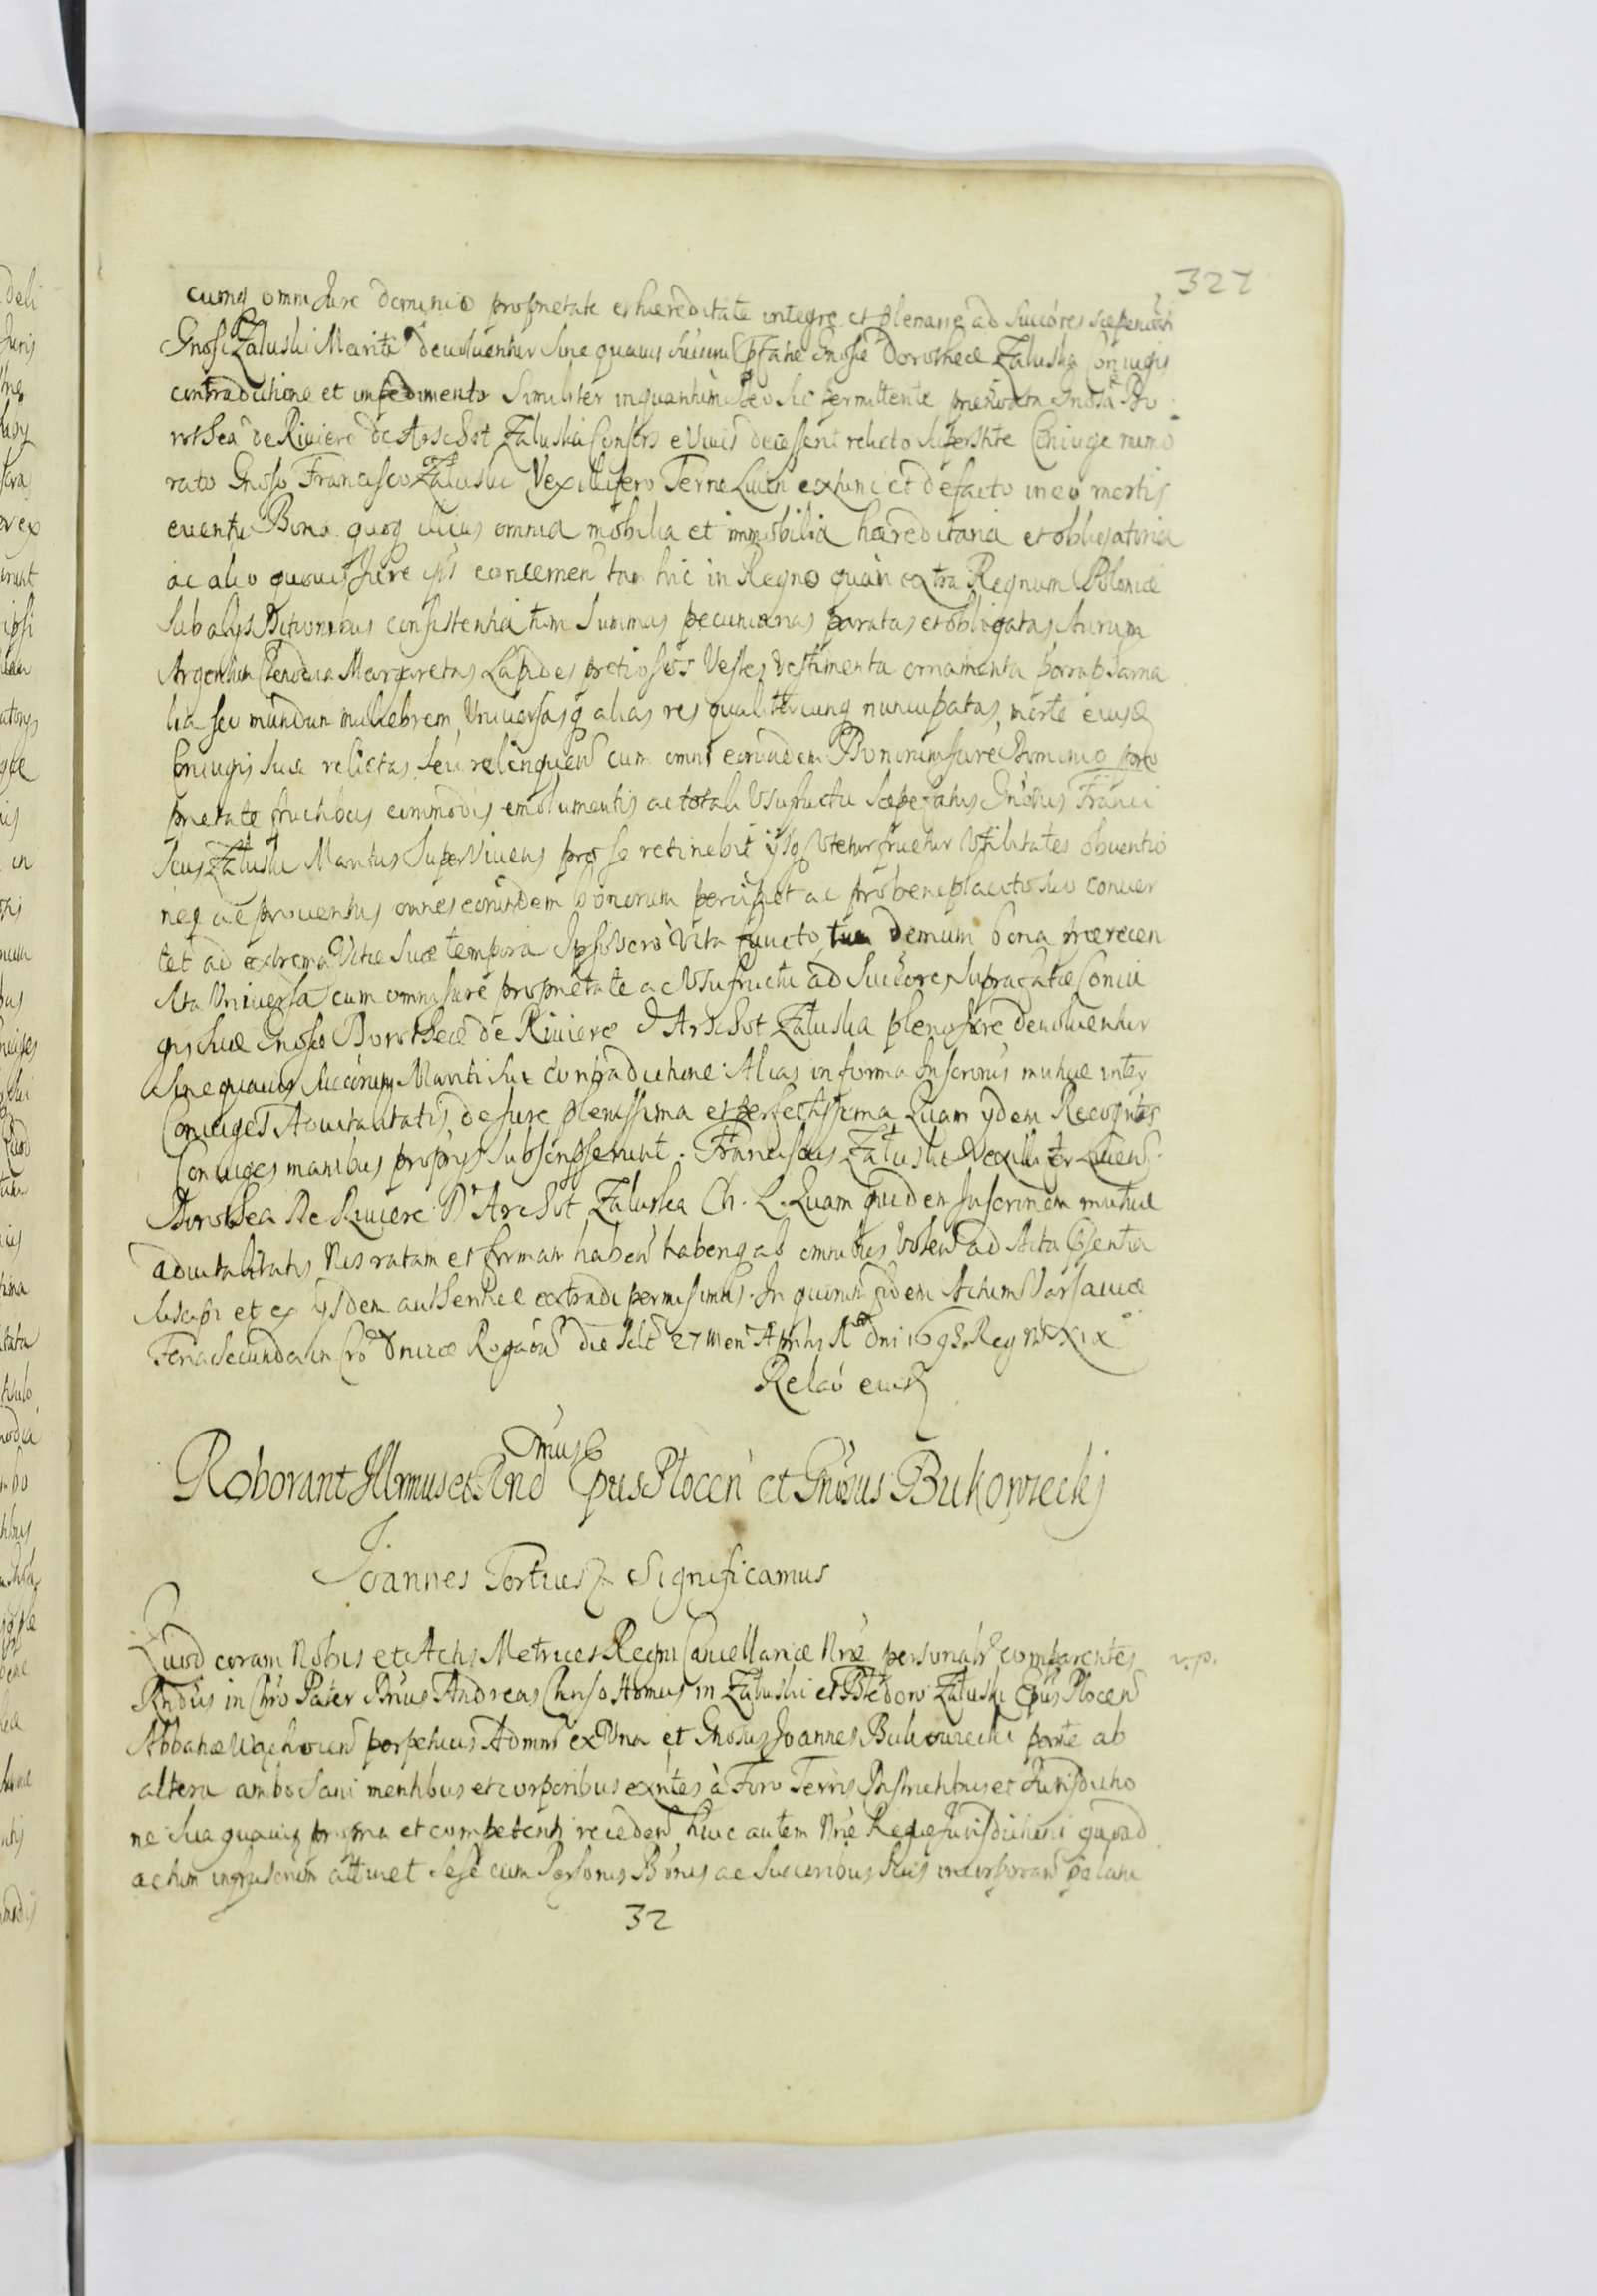 327
cumq omni Jure dominio proprietate et haereditate integre et plenarie ad Succóres saepenodti
Gnosi Zaluski Mariti devolventur Sine quavis Succrum pfatae Gnosae Dorotheae Zaluska Coniugis
contradictione et impedimento Similiter inquantum Deo sic permittente prenodta Gnosa Do
rothea de Riviere de Arschot Zaluska Consors e Vivis decesserit relicto Superstite Coniuge memo
rato Gnoso Francisco Zaluski Vexillifero Terrae Liven extunc et defacto in eo mortis
eventu Bona quoq illius omnia mobilia et immobilia haereditaria et obligatoria
ac alio quovis Jure ipsi concernen tam hic in Regno quàm extra Regnum Poloniae
Sub alijs Ditionibus consistentia tum Summas pecuniarias paratas et obligatas Aurum
Argentum Clenodia Margaretas Lapides pretiosos Vestes Vestimenta ornamenta parapharna
lia seu mundum muliebrem, Universasq alias res qualitercunq nuncupatas, morte eiusd
Coniugis Suae relictas seu relinquen cum omni eorundem Bonorum Jure Dominio pro
prietate fructibus commodis emolumentis ac totali Usufructu Saepefatus Gnosus Franci
scus Zaluski Maritus Supervivens pro se retinebit ijsq Utetur fruetur Utilitates obventio
nes ac proventus omnes eorundem bonorum percipiet ac pro beneplacito suo conver
tet ad extrema Vitae Suae tempora Ipso Vero Vita functo, tum demum bona praerecen
sita Universa cum omni Jure proprietate ac Usufructu ad Succores supra fatae Coniu
gis Suae Gnosae Dorotheae de Riviere D Arschot Zaluska pleno Jure devolventur
Sine quavis Succorum Mariti Sui contradictione. Alias in forma Inscronis mutuae inter
Coniuges Advitalitatis de Jure plenissima et perfectissima Quam ijdem Recogntes
Coniuges manibus proprijs Subscripserunt. Franciscus Zaluski Vexillifer Livens.
Dorothea De Riviere D'Arschot Zaluska Ch. L. Quam quidem Inscronem mutuae
advitalitatis Nos ratam et firmam haben habenq ab omnibus Volen ad Acta psentia
Suscipi et ex ijsdem authentice extradi permisimus. In quorum fidem Actum Varsaviae
Feria Secunda in Cro Dnicae Rogaon die Scilt 27 Men Aprilis A Dni 1693. Reg Nri XIX
Relaó eiusd
Roborant Illrmus et Rnd mus Epus Plocen et Gnosus Bukowiecki
Joannes Tertius Significamus
Quod coram Nobis et Actis Metrices Regni Cancellariae Nrae personalr comparentes v. p.
Rndus in Chro Pater Dnus Andreas Chrisostomus in Zaluski et Bledow Zaluski Epus Plocen
Abbatiae Wachocen perpetuus Admnr ex Una et Gnosus Joannes Bukowiecki parte ab
altera ambo Sani mentibus et corporibus exntes à Foro Terris Districtibus et Jurisdictio
ne Sua quavis propria et competenti receden huic autem Nrae Regiae Jurisdictioni quoad
actum infrascrum attinet Sese cum Personis Bonis ac Succoribus suis incorporan palam
32